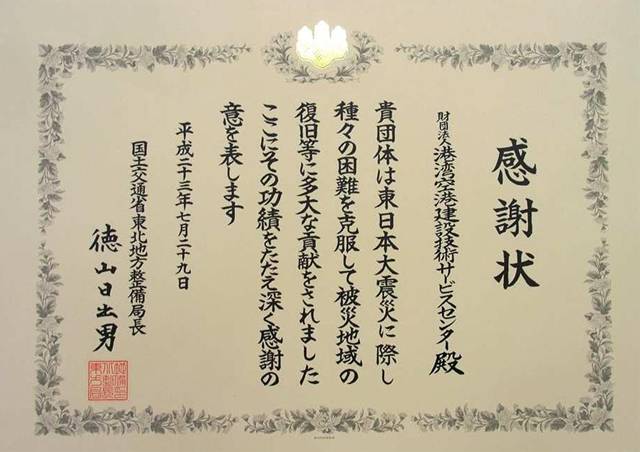 感謝状
財団法人港湾空港建設技術サービスセンター殿
貴団体は東日本大震災に際し
種々の困難を克服して被災地域の
復旧等に多大な貢献をされました
ここにその功績をたたえ深く感謝の
意を表します
平成二十三年七月二十九日
国土交通省東北地方整備局長
徳山日出男